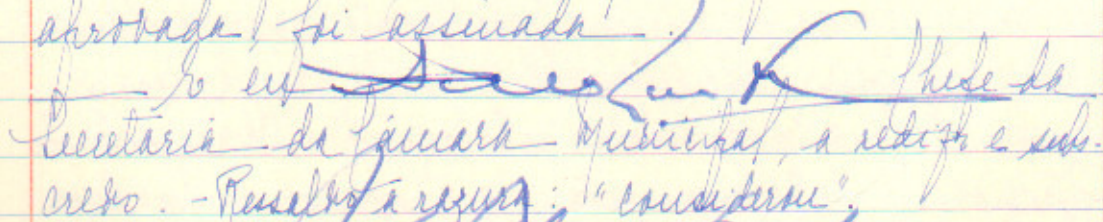 aprovada foi assinada.
E eu Chefe da
Secretaria da Câmara Municipal, a redigi e subs-
crevo. - Ressalvo a razura: "considerou".